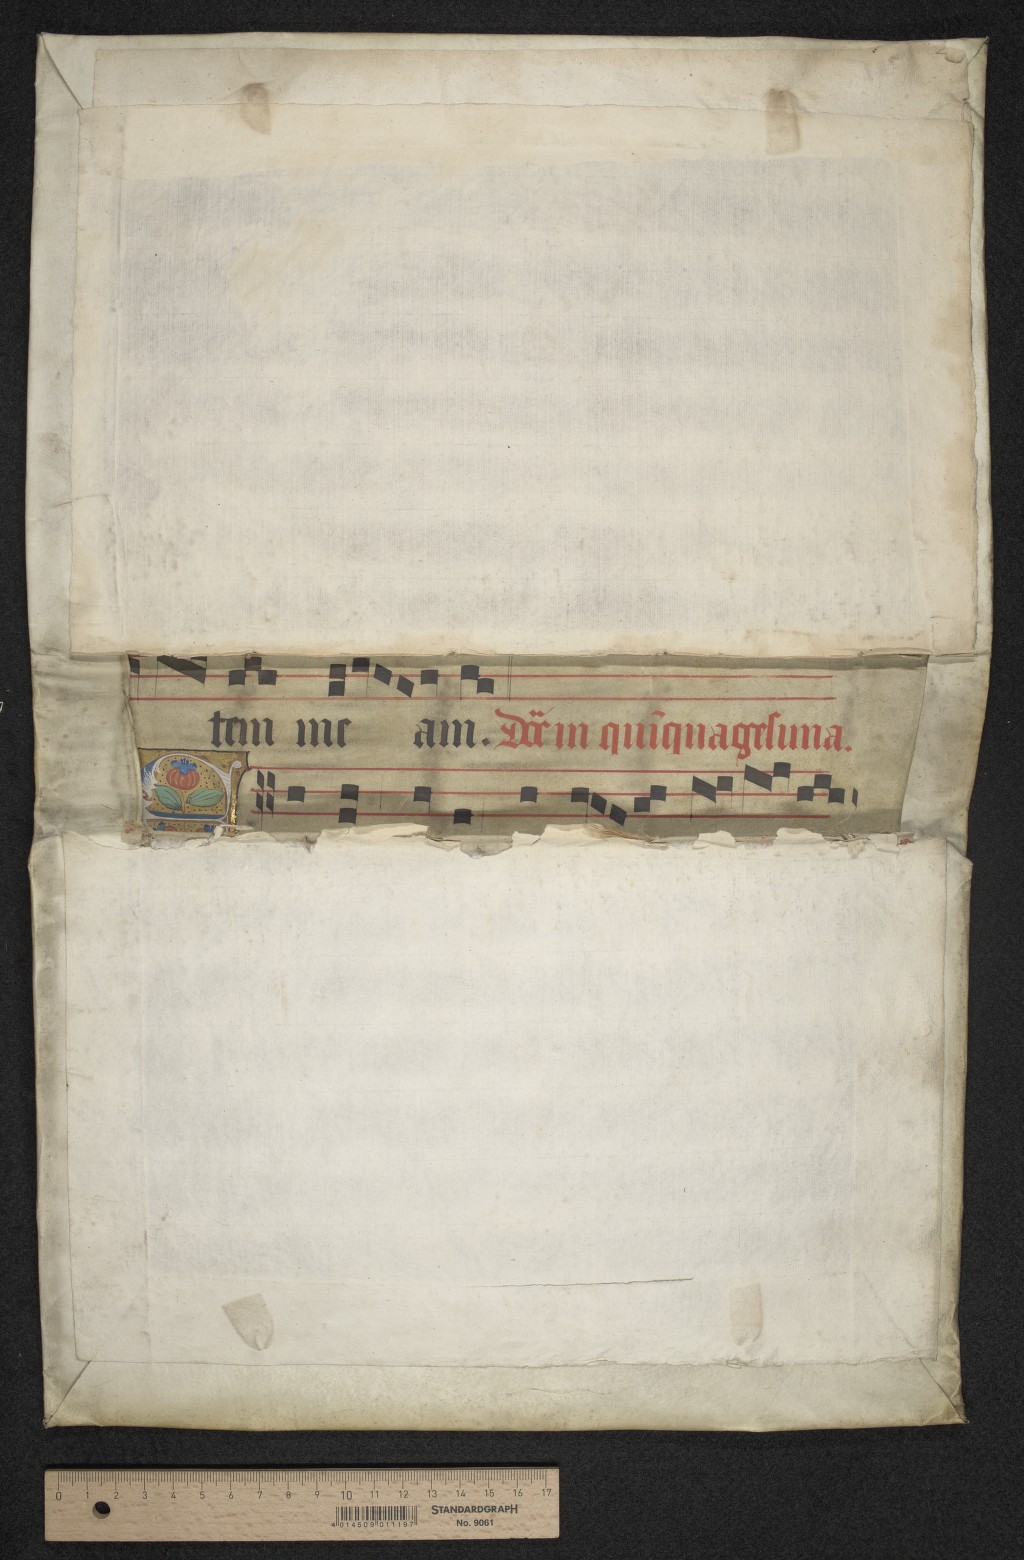 tem me am. Dn̄ic in quīquagesima.
0 1 2 3 4 5 6 7 8 9 10 11 12 13 14 15 16 17
4 014509 011197
STANDARDGRAPH
No. 9061